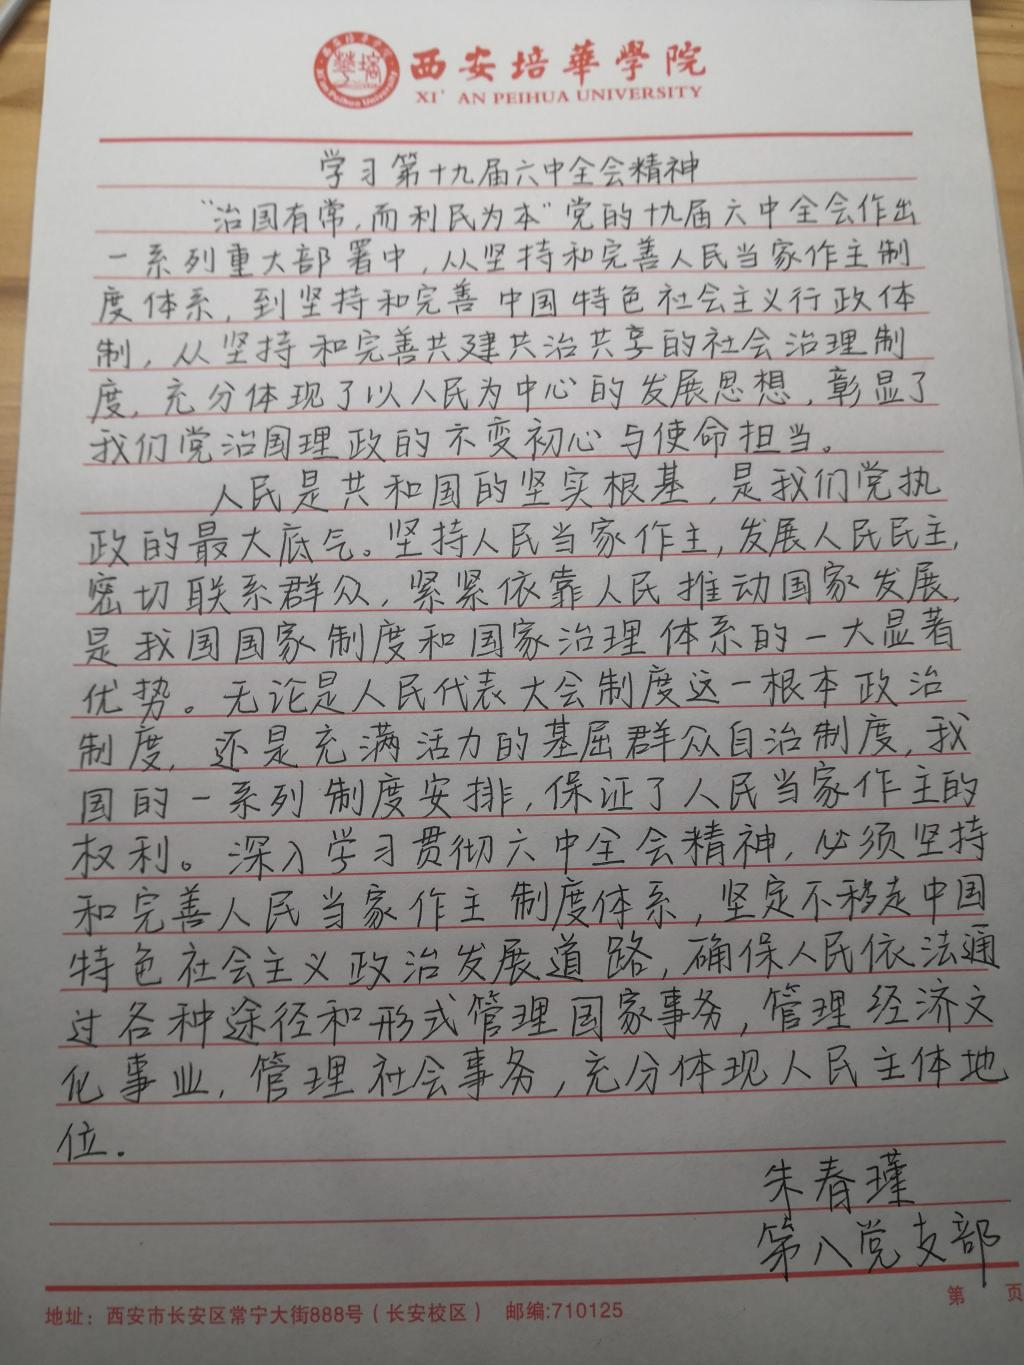 西安培華學院
XI'AN PEIHUA UNIVERSITY
学习第十九届六中全会精神
“治国有常，而利民为本”党的十九届六中全会作出
一系列重大部署中，从坚持和完善人民当家作主制
度体系，到坚持和完善中国特色社会主义行政体
制，从坚持和完善共建共治共享的社会治理制
度，充分体现了以人民为中心的发展思想，彰显了
我们党治国理政的不变初心与使命担当。
人民是共和国的坚实根基，是我们党执
政的最大底气。坚持人民当家作主，发展人民民主，
密切联系群众，紧紧依靠人民推动国家发展，
是我国国家制度和国家治理体系的一大显著
优势。无论是人民代表大会制度这一根本政治
制度，还是充满活力的基层群众自治制度，我
国的一系列制度安排，保证了人民当家作主的
权利。深入学习贯彻六中全会精神，必须坚持
和完善人民当家作主制度体系，坚定不移走中国
特色社会主义政治发展道路，确保人民依法通
过各种途径和形式管理国家事务，管理经济文
化事业，管理社会事务，充分体现人民主体地
位。
朱春瑾
第八党支部
第 页
地址：西安市长安区常宁大街888号（长安校区） 邮编:710125